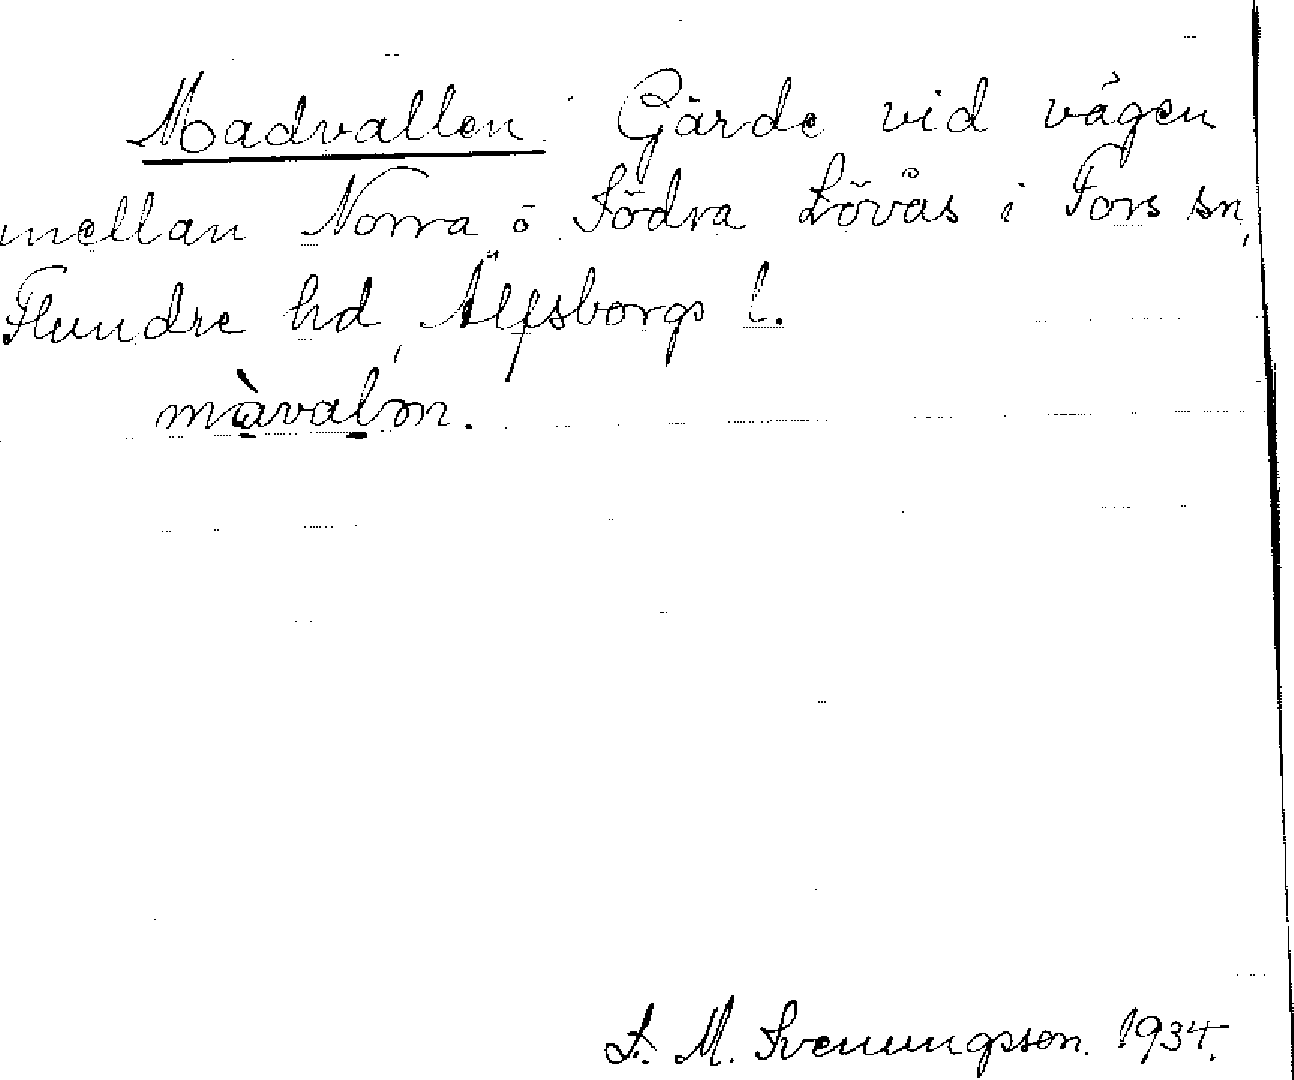 Madvallen. Gärde vid vägen
mellan Norra o Södra Lövås i Fors sn,
Flundre hd, Älfsborgs l.
màvalən.
L. M. Svenungsson. 1934.